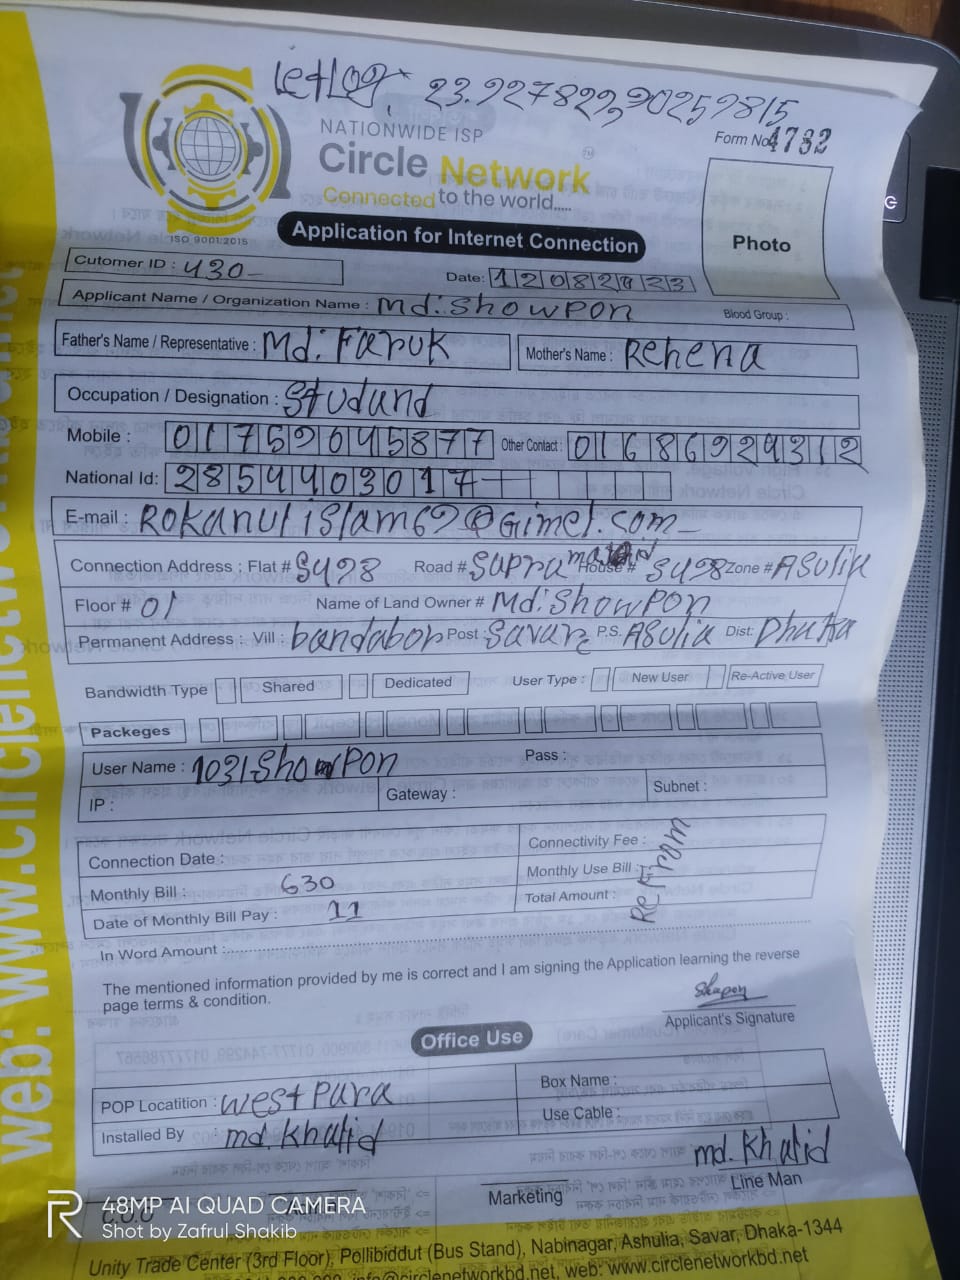 Let Log, 23.927822,90259815
NATIONWIDE ISP
Form No 4782
Circle Network TM
Connected to the world.....
ISO 9001:2015
Application for Internet Connection
Photo
Cutomer ID : 430
Date: 12082023
Applicant Name / Organization Name : Md: Showpon Blood Group :
Father's Name / Representative : Md. Faruk Mother's Name : Rehena
Occupation / Designation : Studand
Mobile : 01759045877 Other Contact : 01686929312
National Id: 2854403017
E-mail : Rokanul Slam69@Gimel.com
Connection Address : Flat # S498 Road # Sapra House # S498 Zone # ASulia
Floor # 01 Name of Land Owner # Md: Showpon
Permanent Address : Vill : bandabor Post : Savar P.S. ASulia Dist: Dhaka
Bandwidth Type Shared Dedicated User Type : New User Re-Active User
Packeges
User Name : 1031Showpon Pass :
IP : Gateway : Subnet :
Connection Date : Connectivity Fee :
Monthly Bill : 630 Monthly Use Bill :
Date of Monthly Bill Pay : 11 Total Amount :
In Word Amount :
The mentioned information provided by me is correct and I am signing the Application learning the reverse
page terms & condition.
Shapon
Applicant's Signature
Office Use
POP Locatition : West Para Box Name :
Installed By : md. Khalid Use Cable :
md. Khalid
C.O.O Marketing Line Man
48MP AI QUAD CAMERA
Shot by Zafrul Shakib
Unity Trade Center (3rd Floor), Pollibiddut (Bus Stand), Nabinagar, Ashulia, Savar, Dhaka-1344
info@circlenetworkbd.net, web: www.circlenetworkbd.net
web: www.circlenetwo